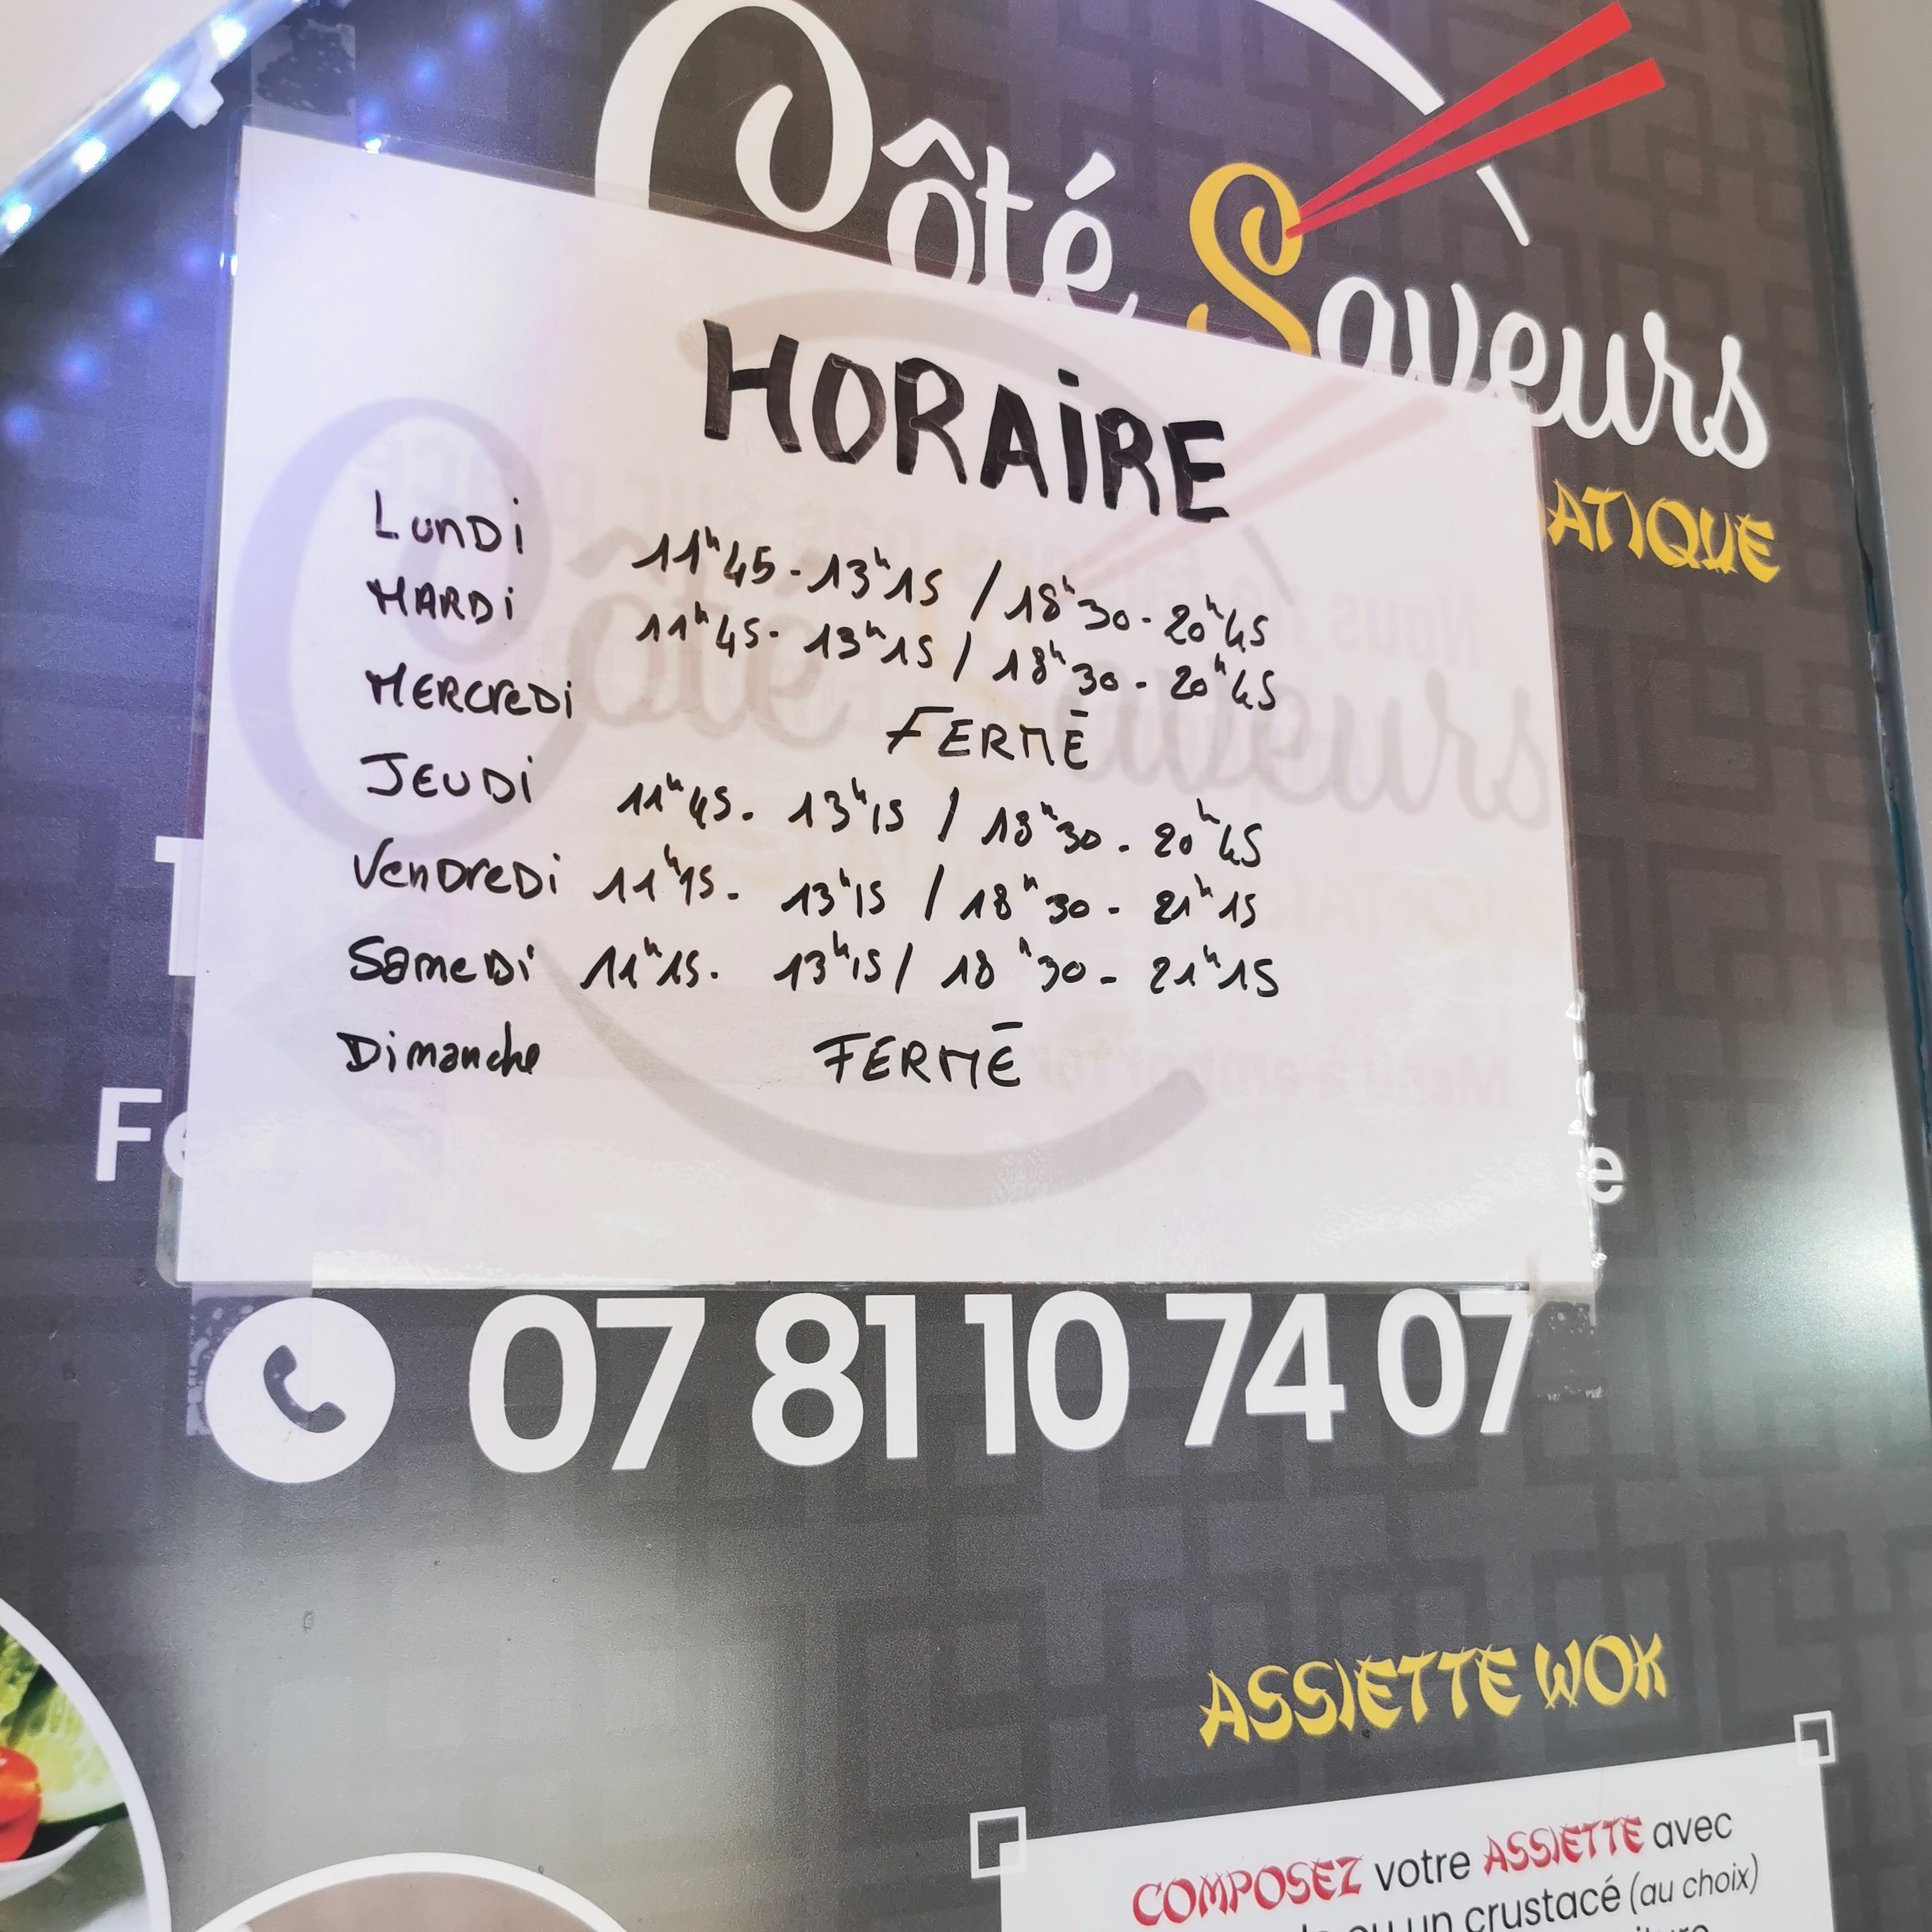 Côté Saveurs
ATIQUE
HORAiRE
LUnDi 11h45 - 13h15 / 18h30 - 20h45
MARDi 11h45 - 13h15 / 18h30 - 20h45
MERCreDi FERMÉ
JEUDi 11h45 - 13h15 / 18h30 - 20h45
VenDreDi 11h15 - 13h15 / 18h30 - 21h15
SameDi 11h15 - 13h15 / 18h30 - 21h15
Dimanche FERMÉ
07 81 10 74 07
ASSIETTE WOK
COMPOSEZ votre ASSIETTE avec
ou un crustacé (au choix)